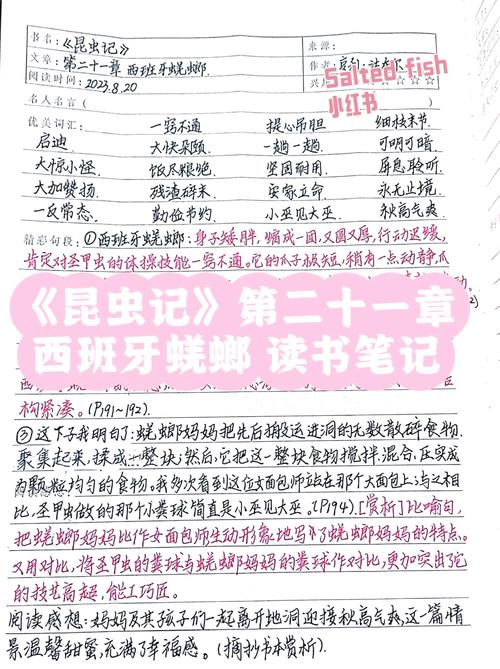 书名:《昆虫记》
来源:
文章:第二十一章 西班牙蜣螂
作者:
阅读时间:2023.8.20
Salted fish
小红书
名人名言(
优美词汇: 一窍不通 提心吊胆 细枝末节
启迪 大快朵颐 一趟一趟 可明可暗
大惊小怪 饭尽粮绝 坚固耐用 屏息聆听
大加赞扬 残渣碎末 安家立命 永无止境
一反常态 勤俭节约 小巫见大巫 秋高气爽
精彩句段:①西班牙蜣螂:身子矮胖,缩成一团,又圆又厚,行动迟缓,
肯定对圣甲虫的体操技能一窍不通。它的爪子极短,稍有一点动静,爪
《昆虫记》第二十一章
西班牙蜣螂 读书笔记
构紧凑。(P191~192).
③这下子我明白了:蜣螂妈妈把先后搬运进洞的无数散碎食物
聚集起来,揉成一整块;然后,它把这一整块食物搅拌、混合、压实成
为颗粒均匀的食物。我多次看到这位女面包师站在那个大面包上;与之相
比,圣甲虫做的那个小粪球简直是小巫见大巫。(P194).[赏析]比喻句,
把蜣螂妈妈比作女面包师生动形象地写了蜣螂妈妈的特点。
又用对比,将圣甲虫的粪球与蜣螂妈妈的粪球作对比,更加突出了它
的技艺高超,能工巧匠。
阅读感想:妈妈及其孩子们一起离开地洞迎接秋高气爽,这一篇情
景温馨甜蜜,充满了幸福感。(摘抄书本赏析).